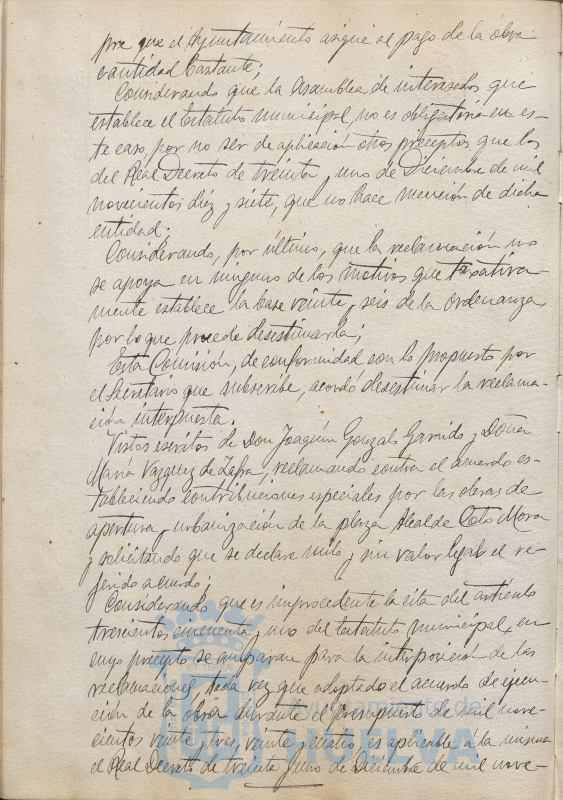 pre que el Ayuntamiento asigne al pago de la obra
cantidad bastante;
Considerando que la Asamblea de interesados que
establece el Estatuto municipal, no es obligatoria en es-
te caso, por no ser de aplicación otros preceptos que los
del Real Decreto de treinta y uno de Diciembre de mil
novecientos diez y siete, que no hace mención de dicha
entidad;
Considerando, por último, que la reclamación no
se apoya en ninguno de los motivos que taxativa-
mente establece la base veinte y seis de la Ordenanza,
por lo que procede desestimarla;
Esta Comisión, de conformidad con lo propuesto por
el Secretario que subscribe, acordó desestimar la reclama-
ción interpuesta.
Vistos escritos de Don Joaquín Gonzalo Garrido y Doña
María Vazquez de Zafra, reclamando contra el acuerdo es-
tableciendo contribuciones especiales por las obras de
apertura y urbanización de la plaza Alcalde Coto Mora
y solicitando que se declare nulo y sin valor legal el re-
ferido acuerdo;
Considerando que es improcedente la cita del artículo
trescientos cincuenta y uno del Estatuto municipal, en
cuyo precepto se amparan para la interposición de las
reclamaciones, toda vez que adoptado el acuerdo de ejecu-
ción de la obra durante el presupuesto de mil nove-
cientos veinte y tres, veinte y cuatro, es aplicable a la misma
el Real Decreto de treinta y uno de Diciembre de mil nove-
Ayuntamiento de
HUELVA